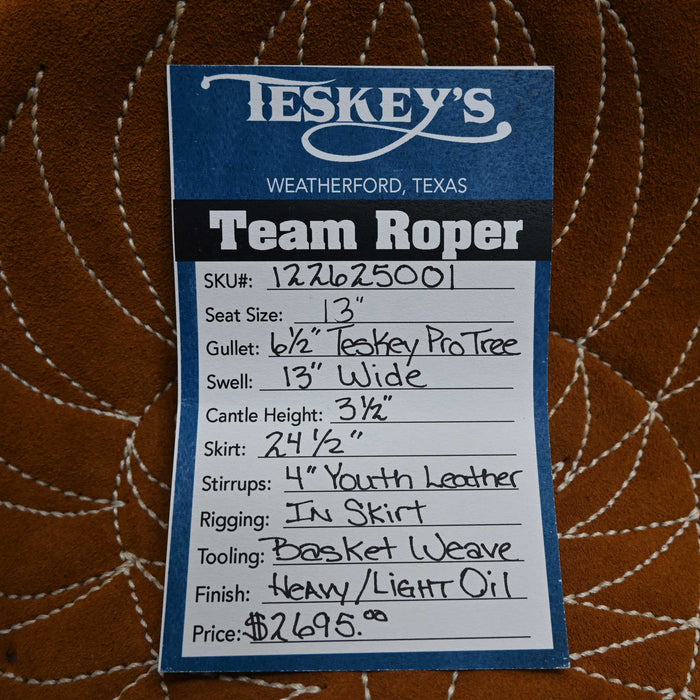 TESKEY'S
WEATHERFORD, TEXAS
Team Roper
SKU#: 122625001
Seat Size: 13"
Gullet: 6½" Teskey Pro Tree
Swell: 13" Wide
Cantle Height: 3½"
Skirt: 24 1/2"
Stirrups: 4" Youth Leather
Rigging: In Skirt
Tooling: Basket Weave
Finish: Heavy/Light Oil
Price: $2695.00